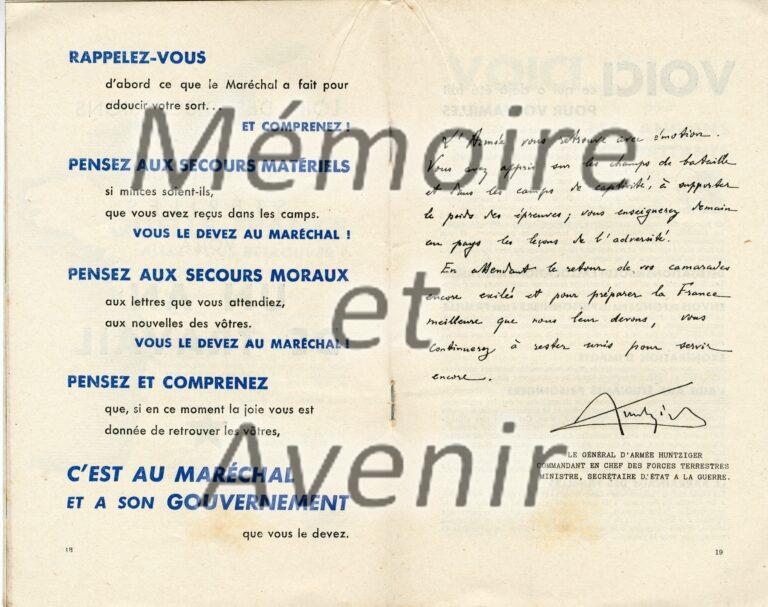 RAPPELEZ-VOUS
d'abord ce que le Maréchal a fait pour
adoucir votre sort...
ET COMPRENEZ !
PENSEZ AUX SECOURS MATÉRIELS
si minces soient-ils,
que vous avez reçus dans les camps.
VOUS LE DEVEZ AU MARÉCHAL !
PENSEZ AUX SECOURS MORAUX
aux lettres que vous attendiez,
aux nouvelles des vôtres.
VOUS LE DEVEZ AU MARÉCHAL !
PENSEZ ET COMPRENEZ
que, si en ce moment la joie vous est
donnée de retrouver les vôtres,
C'EST AU MARÉCHAL
ET A SON GOUVERNEMENT
que vous le devez.
18
VOICI
ce qui a déjà été fait
POUR VOS FAMILLES
L'Armée vous retrouve avec émotion.
Vous avez appris sur les champs de bataille
et dans les camps de captivité, à supporter
le poids des épreuves ; vous enseignerez demain
au pays les leçons de l'adversité.
En attendant le retour de vos camarades
encore exilés et pour préparer la France
meilleure que nous leur devons, vous
continuerez à rester unis pour servir
encore.
Huntziger
LE GÉNÉRAL D'ARMÉE HUNTZIGER
COMMANDANT EN CHEF DES FORCES TERRESTRES
MINISTRE, SECRÉTAIRE D'ÉTAT A LA GUERRE.
19
Mémoire
et
Avenir